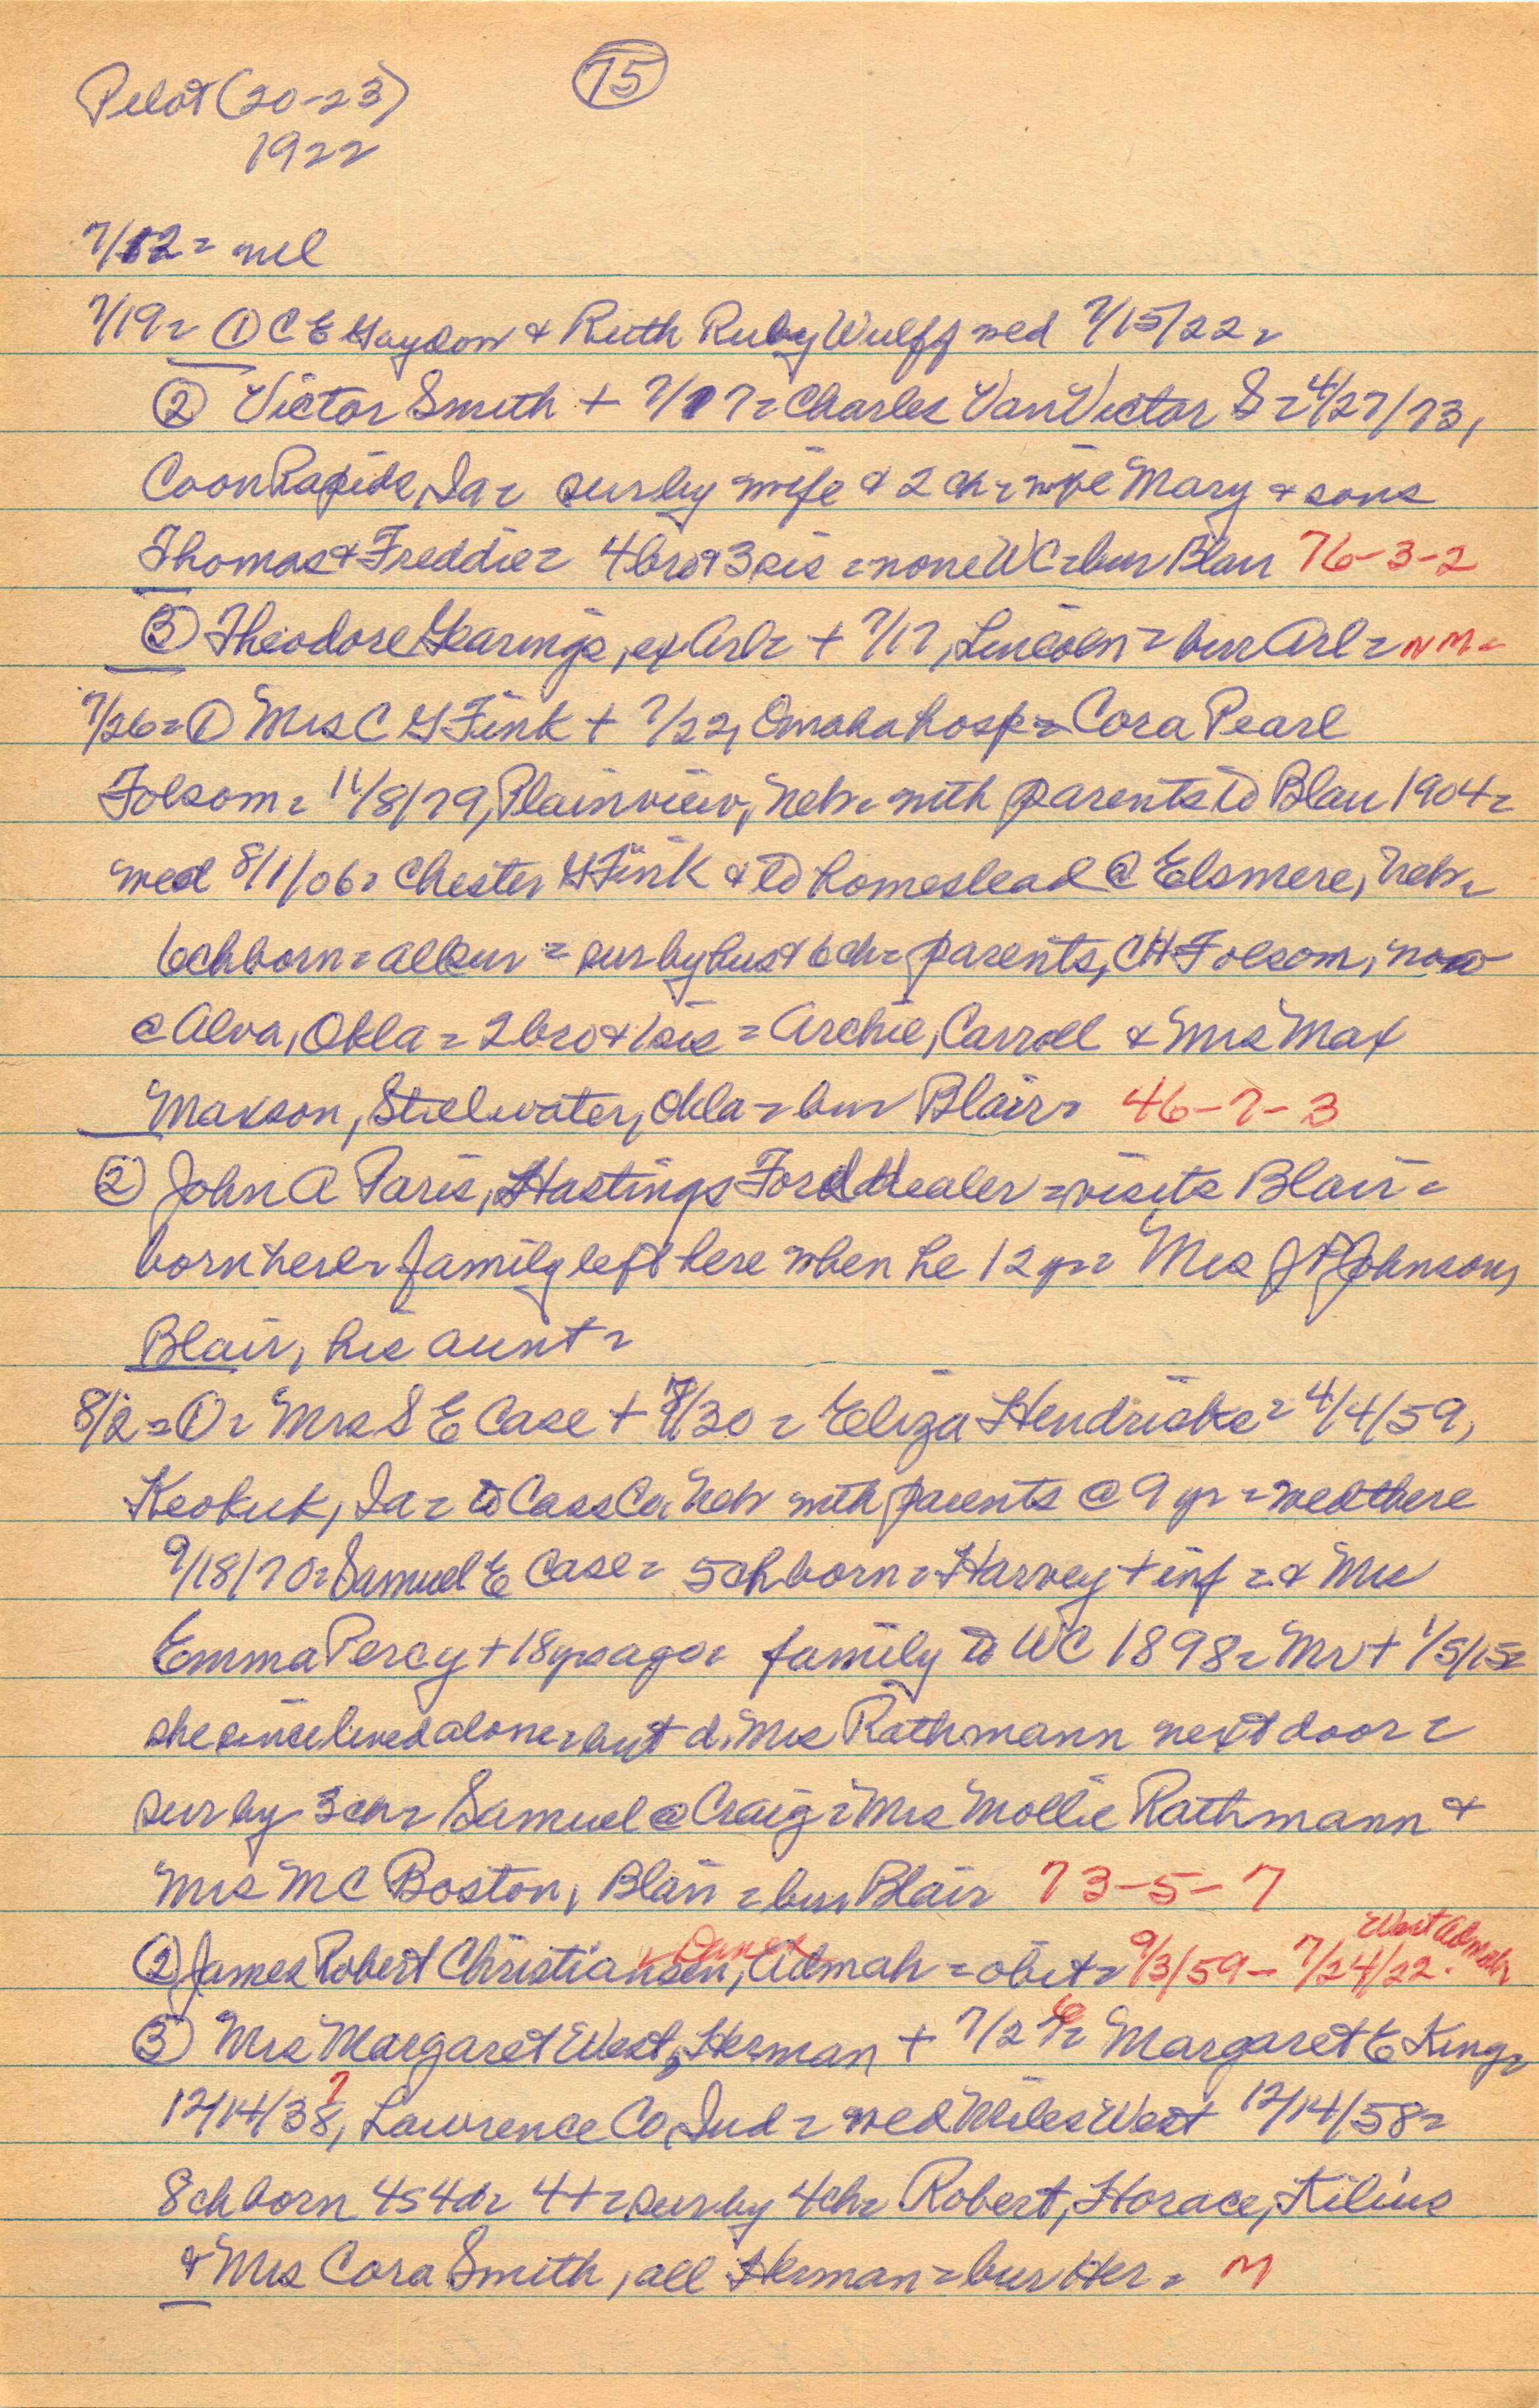 Pilot (20-23)
75
1922
7/12 = nil
7/19 = ① C E Gaydon & Ruth Ruby Wulff wed 7/15/22 =
② Victor Smith + 7/17 = Charles Van Victor S = 4/27/73,
Coon Rapids, Ia = surby wife & 2 ch = wife Mary & sons
Thomas & Freddie = 4 bro & 3 sis = none WC = bur Blair 76-3-2
③ Theodore Gearings, ex Arl = + 7/17, Lincoln = bur Arl = NM =
7/26 = ① Mrs C G Fink + 7/22, Omaha hosp = Cora Pearl
Folsom = 11/8/79, Plainview, Neb = with parents to Blair 1904 =
wed 8/1/06 = Chester G Fink & to homestead @ Elsmere, Neb =
6 ch born = all sur = sur by hus & 6 ch = parents, CH Folsom, now
@ Alva, Okla = 2 bro & 1 sis = Archie, Carroll & Mrs Max
Maxson, Stillwater, Okla = bur Blair = 46-7-3
② John A Paris, Hastings Ford dealer = visits Blair =
born here = family left here when he 12 yr = Mrs J F Johnson,
Blair, his aunt =
8/2 = ① = Mrs S E Case + 7/30 = Eliza Hendricks = 4/4/59,
Keokuk, Ia = to Cass Co, Neb with parents @ 9 yr = wed there
9/18/70 = Samuel E Case = 5 ch born = Harvey + inf = & Mrs
Emma Percy + 18 yrs ago = family to WC 1898 = Mr + 1/5/15 =
she since lived alone = but d, Mrs Rathmann next door =
sur by 3 ch = Samuel @ Craig = Mrs Mollie Rathmann &
Mrs M C Boston, Blair = bur Blair 73-5-7
② James Robert Christiansen, Admah = obit = 9/3/59 - 7/24/22. West Admah
③ Mrs Margaret West, Herman + 7/26 = Margaret E King =
12/14/38?, Lawrence Co, Ind = wed Miles West 12/14/58 =
8 ch born 4s 4d = 4+ = sur by 4 ch = Robert, Horace, Kilius
& Mrs Cora Smith, all Herman = bur Her = M